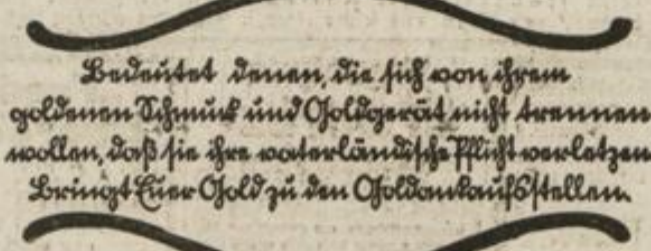 Bedeutet denen, die sich von ihrem
goldenen Schmuck und Goldgerät nicht trennen
wollen, daß sie ihre vaterländische Pflicht verletzen
Bringt Euer Gold zu den Goldankaufsstellen.